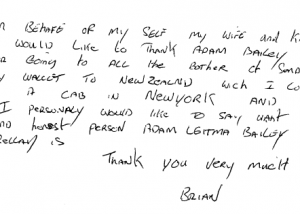 BEHALF OF MY SELF MY WIFE AND
WOULD LIKE TO THANK ADAM BAILEY
GOING TO ALL THE BOTHER OF
WALLET TO NEWZEALND WICH I
A CAB IN NEWYORK AND
I PERSONALY WOULD LIKE TO SAY WHAT
HONEST PERSON ADAM LEITMA BAILEY
IS
THANK YOU VERY MUCH
BRIAN